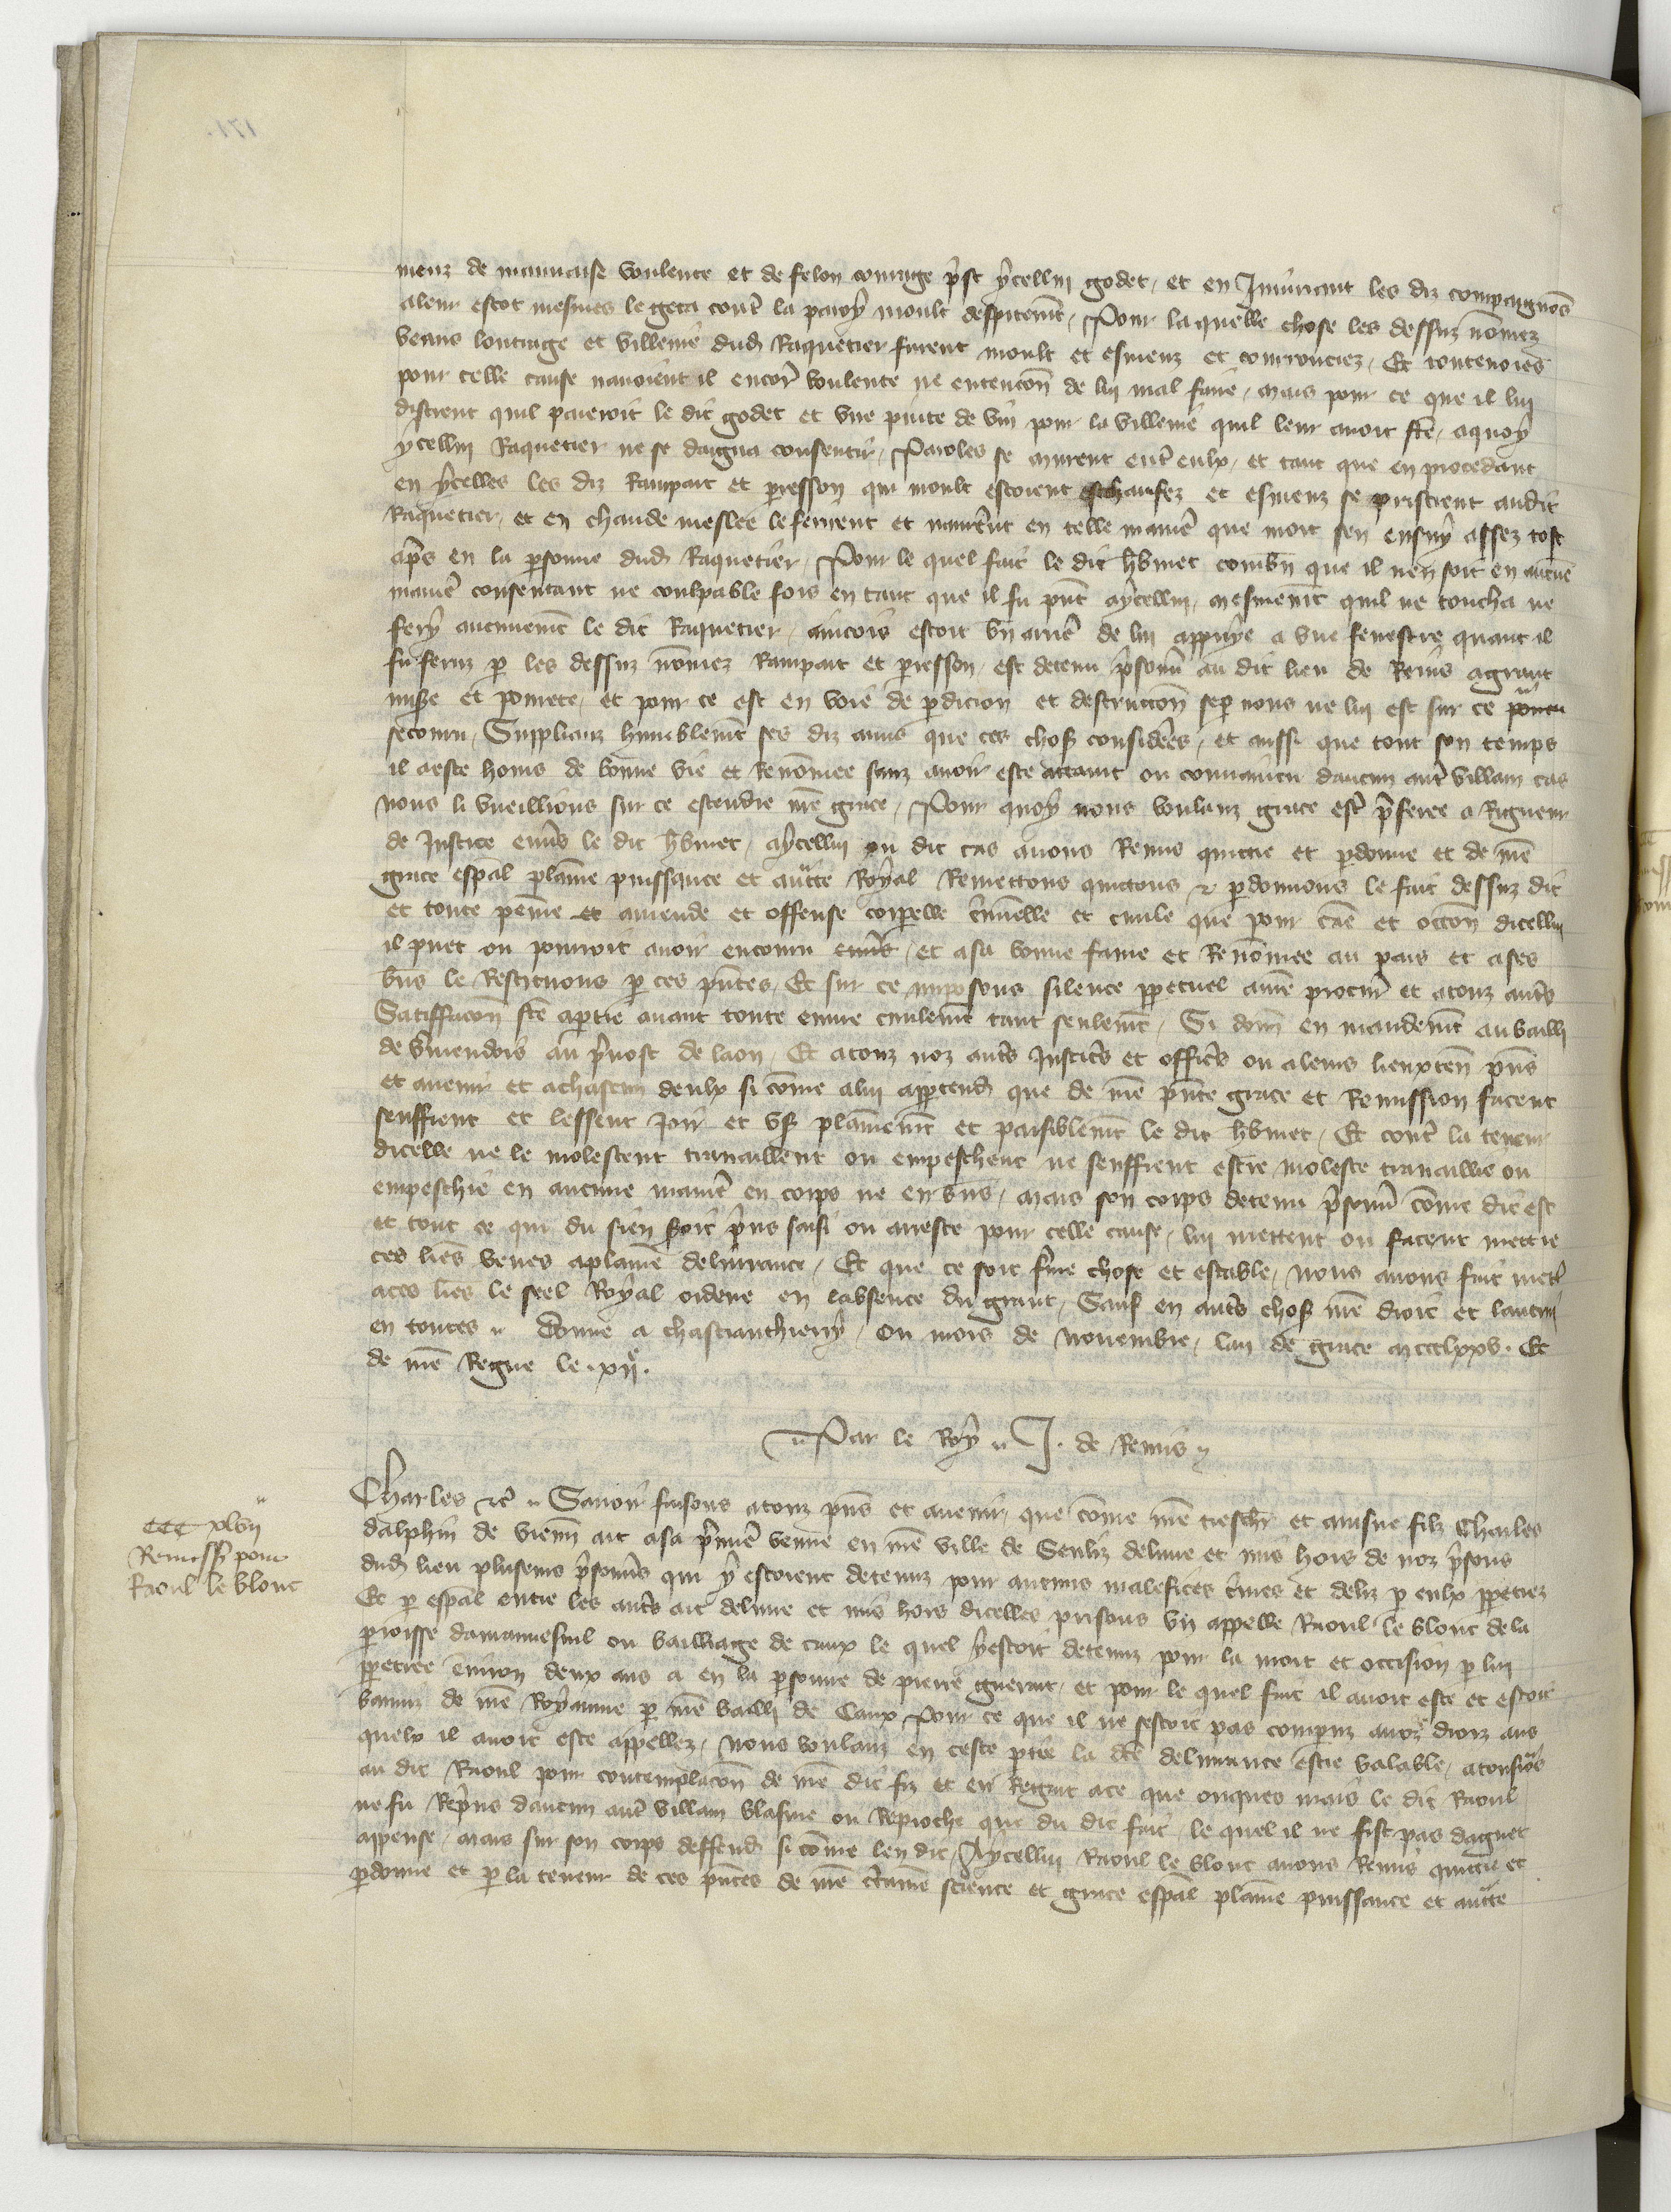 meuz de mauuaise voulente et de felon courage p̃st ycellui godet, et en Iniuriant les diz compaignons
a leur escot mesmes le geta cont̃ la paroy moult despitem̃t, Pour laquelle chose les dessuz nõmez
veans loutrage et villenie dud Raquetier furent moult et esmeuz et courrouciez, Et toutenoies
pour celle cause nauoient il encor̃ voulente ne entencõn de lui mal faire, mais pour ce que il lui
disrent quil paieroit le dit godet et vne pinte de vin pour la villenie quil leur auoit fc̃e, a quoy
ycellui Raquetier ne se daigna consentir, Paroles se murent ent̃ eulx, et tant que en procedant
en ycelles les diz Rampart et presson qui moult estoient eschaufez et esmeuz se pristrent audit
Raquetier, et en chaude meslee le ferirent et naur̃ent en telle manier̃ que mort sen ensuy assez tost
ap̃s en la p̃sonne dud Raquetier, Pour le quel fait le dit hũnet combñ que il nen soit en aucune
manier̃ consentant ne coulpable fors en tant que il fu p̃nt a ycellui, mesmem̃t quil ne toucha ne
fery aucunem̃t le dit Raquetier, aincois estoit vn aut̃ de lui appuye a vne fenestre quant il
fu feruz p̱ les dessuz nõmez Rampart et presson, est detenu p̃sonñ au dit lieu de Reins a grant
misẽ et pourete, et pour ce est en voie de p̱dicion et destruccõn se p̱ nous ne lui est sur ce pourueu
secouru, Supplianz humblem̃t ses diz amis que ces chosẽs consider̃es, et aussi que tout son temps
il a este homs de bonne vie et Renõmee sanz auoir este attaint ou conuaincu daucun aut̃ villain cas
nous li vueillions sur ce estendre nr̃e grace, Pour quoy nous voulanz grace est̃ p̃feree a Rigueur
de Iustice enũs le dit hũnet, a ycellui ou dit cas auons Remis quittie et p̱donne et de nr̃e
grace esp̃al plaine puissance et auctte Royal Remettons quittons et p̱donnons le fait dessuz dit
et toute peine et amende et offense corp̱elle cim̃inelle et ciuile que pour cãe et occõn dicellui
il puet ou pourroit auoir encouru enũs, et a sa bonne fame et Renõmee au pais et a ses
bñs le Restituons p̱ ces p̃ntes, Et sur ce imposons silence p̱petuel a nr̃e procur̃ et a touz aut̃s
Satiffacõn fc̃e a partie auant toute euure ciuilem̃t tant seulem̃t, Si donñ en mandem̃t au bailli
de v̑mendois au p̃uost de laon, Et a touz noz aut̃s Iustic̃s et offic̃s ou a leurs lieuxteñ p̃ns
et auenir et a chascun deulx si cõme a lui app̱tend que de nr̃e p̃nte grace et Remission facent
seuffrent et lessent Joir et vsẽ plainem̃t et paisiblem̃t le dit hũnet, Et cont̃ la teneur
dicelle ne le molestent trauaillent ou empeschent ne seuffrent estre moleste trauaillie ou
empeschie en aucune manier̃ en corps ne en bñs, mais son corps detenu p̃sonñ cõme dit est
et tout ce qui du sien seroit p̃ns saisi ou areste pour celle cause, lui mettent ou facent mettre
ces l̃res veues a plaine deliurance, Et que ce soit f̃me chose et estable, nous auons fait mett̃
a ces l̃res le seel Royal ordene en labsence du grant, Sauf en aut̃s chosẽs nr̃e droit et lautrui
en toutes. Donne a chasteauthierry, Ou mois de nouembre, lan de grace m ccc lxxv. Et
de nr̃e Regne le .xij.e
Par le Roy J. de Remis
ccc xlvij
Remiss̃ pour
Raoul le blont
Charles etc̃ Sauoir faisons a touz p̃ns et auenir, que cõme nr̃e tresch̃ et ainsne filz Charles
dalphin de vienñ ait a sa p̃mier̃ venue en nr̃e ville de Senliz deliure et mis hors de noz p̃sons
dud lieu pluseurs p̃sonñs qui y estoient detenuz pour aucuns malefices c̃mes et deliz p̱ eulx p̱petrez
Et p̱ esp̃al entre les aut̃s ait deliure et mis hors dicelles prisons vn appelle Raoul le blont de la
p̱roisse damanuesnil ou bailliage de caux le quel y estoit detenuz pour la mort et occision p̱ lui
p̱petree enuiron deux ans a en la p̱sonne de pierre guerart, et pour le quel fait il auoit este et estoit
banniz de nr̃e Royaume p̱ nr̃e bailli de Caux Pour ce que il ne sestoit pas comparuz aux droiz aus
quelx il auoit este appellez, nous voulanz en ceste p̱tie la dc̃e deliurance estre valable, a tousiõs
au dit Raoul pour contemplacõn de nr̃e dit filz et en Regart a ce que onques mais le dit Raoul
ne fu Rep̃ns daucun aut̃ villain blasme ou Reproche que du dit fait, le quel il ne fist pas daguet
appense, mais sur son corps deffend si cõme len dit, A ycellui Raoul le blont auons Remis quittie et
p̱donne et p̱ la teneur de ces p̃ntes de nr̃e c̃taine science et grace esp̃al plaine puissance et auctte